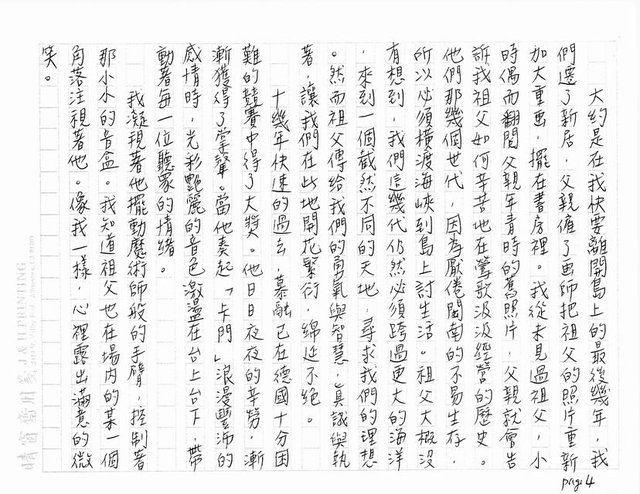 大約是在我快要離開島上的最後幾年，我
們遷了新居，父親僱了畫師把祖父的照片重新
加大重畫，擺在書房裡。我從未見過祖父，小
時偶而翻閱父親年青時的舊照片，父親就會告
訴我祖父如何辛苦地在鶯歌汲汲經營的歷史。
他們那幾個世代，因為厭倦閩南的不易生存，
所以必須橫渡海峽到島上討生活。祖父大概沒
有想到，我們這幾代佔然必須跨過更大的海洋
，來到一個截然不同的天地，尋求我們的理想
。然而祖父傳給我們的勇氣與智慧，真誠與執
著，讓我們在此地開花繁衍，綿延不絕。
十幾年快速的過去，慕融已在德國十分困
難的競賽中得了大獎。他日日夜夜的辛勞，漸
漸獲得了掌聲。當他奏起「卡門」浪漫豐沛的
感情時，光彩艷麗的音色激盪在台上台下，帶
動著每一位聽眾的情緒。
我凝視著他擺動魔術師般的手臂，控制著
那小小的音盒。我知道祖父也在場內的某一個
角落注視著他。像我一樣，心裡露出滿意的微
笑。
page 4
晴窗信用箋 J&H PRINTING